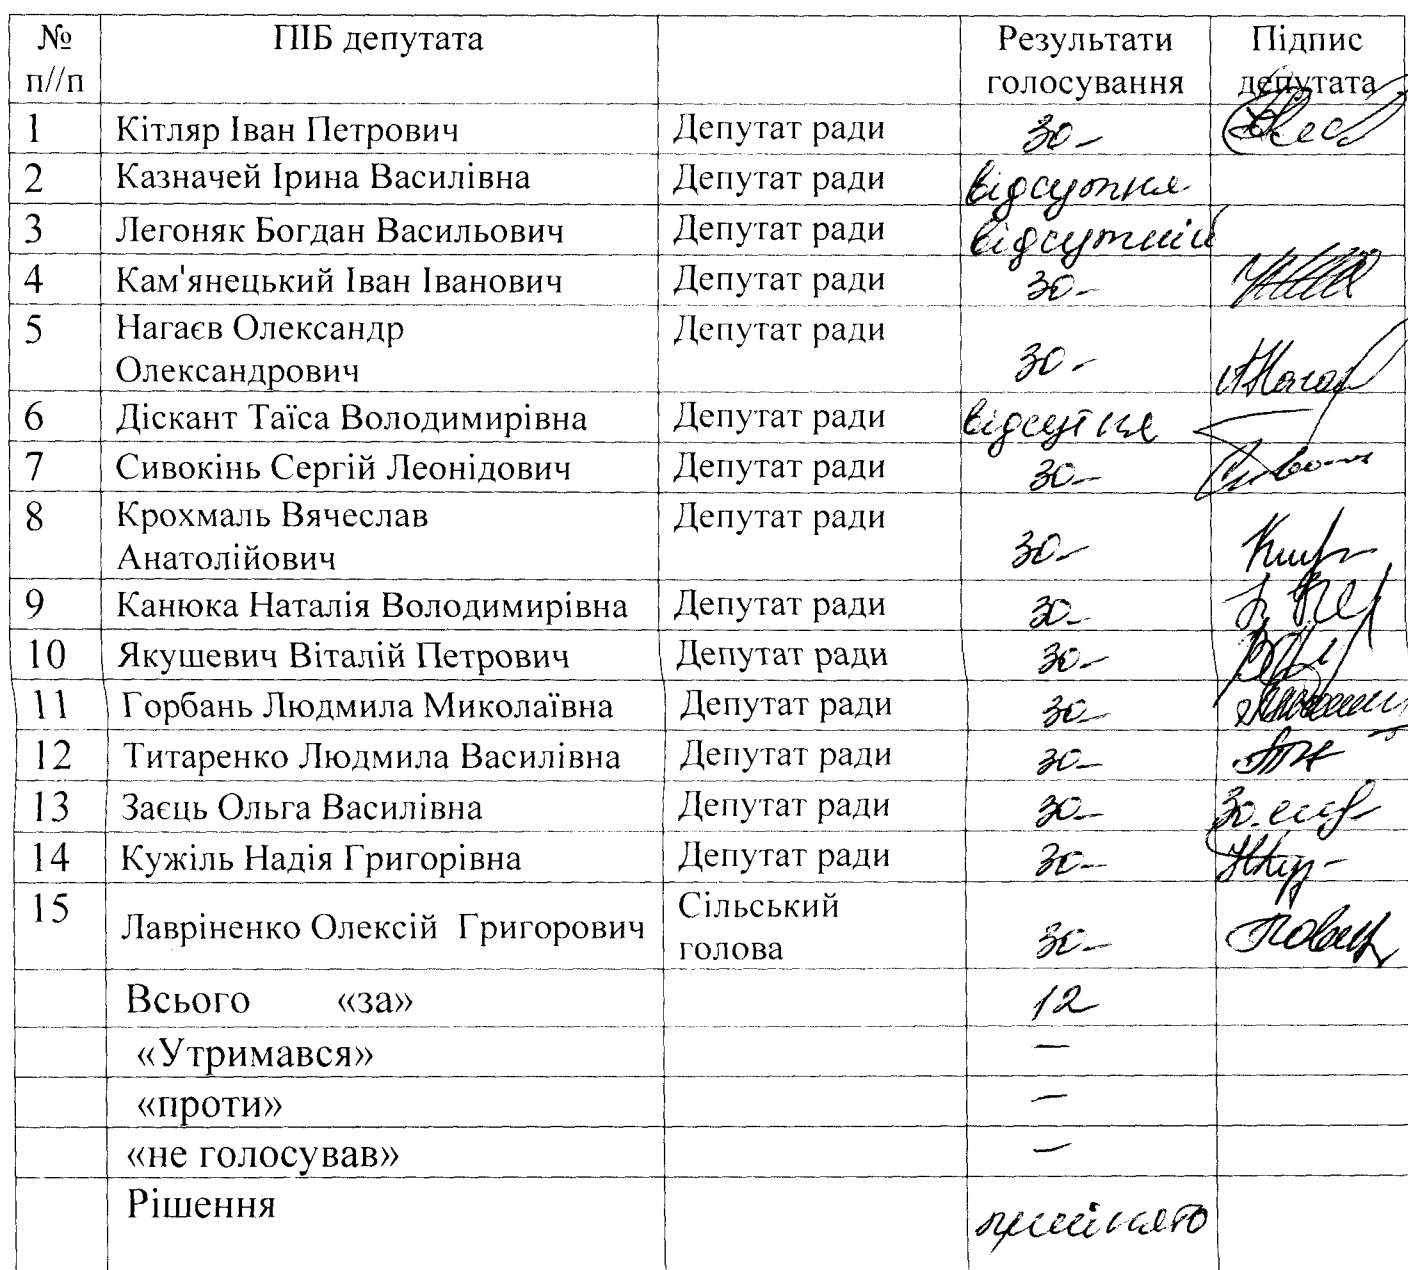 № ПІБ депутата Результати Підпис
п//п голосування депутата
1 Кітляр Іван Петрович Депутат ради за
2 Казначей Ірина Василівна Депутат ради відсутня
3 Легоняк Богдан Васильович Депутат ради відсутній
4 Кам'янецький Іван Іванович Депутат ради за
5 Нагаєв Олександр Депутат ради
Олександрович за
6 Діскант Таїса Володимирівна Депутат ради відсутня
7 Сивокінь Сергій Леонідович Депутат ради за
8 Крохмаль Вячеслав Депутат ради
Анатолійович за
9 Канюка Наталія Володимирівна Депутат ради за
10 Якушевич Віталій Петрович Депутат ради за
11 Горбань Людмила Миколаївна Депутат ради за
12 Титаренко Людмила Василівна Депутат ради за
13 Заєць Ольга Василівна Депутат ради за
14 Кужіль Надія Григорівна Депутат ради за
15 Лавріненко Олексій Григорович Сільський
голова за
Всього «за» 12
«Утримався» –
«проти» –
«не голосував» –
Рішення прийнято